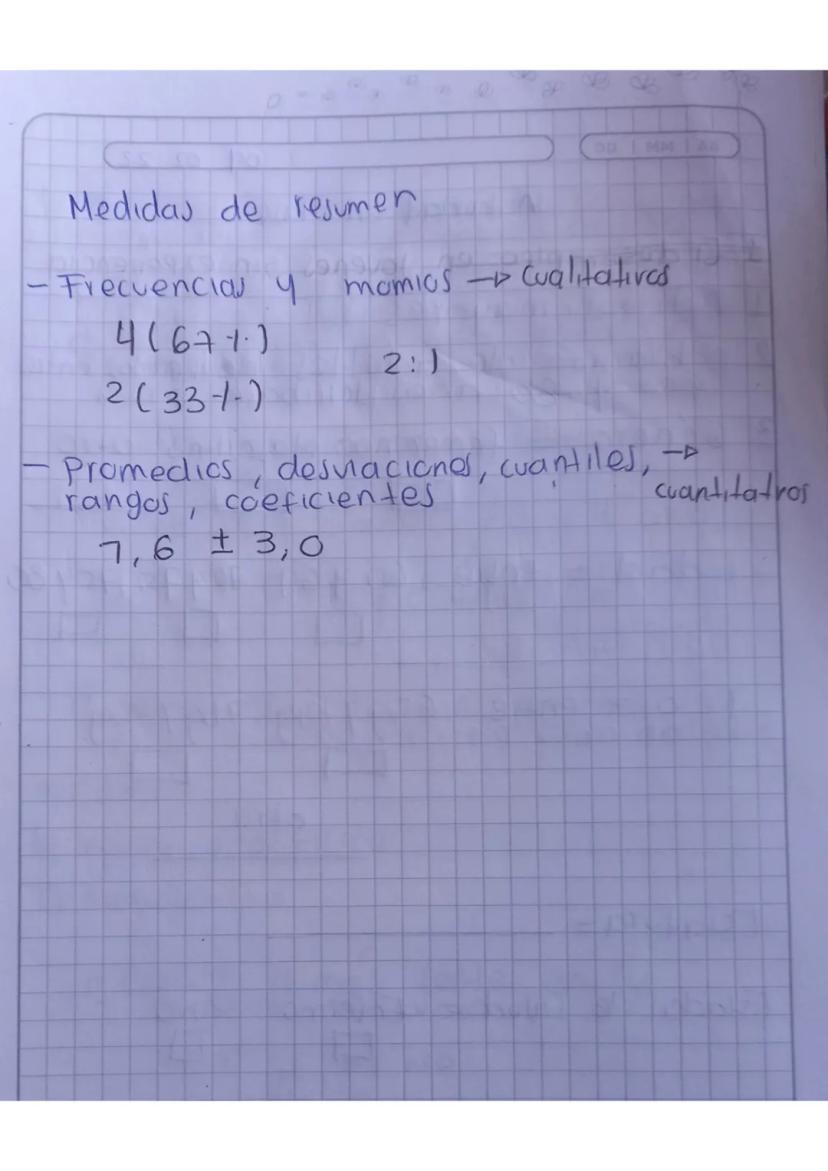 Medidas de resumen
- Frecuencias y momios → Cualitativos
4 (67%)
2:1
2 (33%)
- Promedios, desviaciones, cuantiles, →
rangos, coeficientes cuantitatvos
7,6 ± 3,0